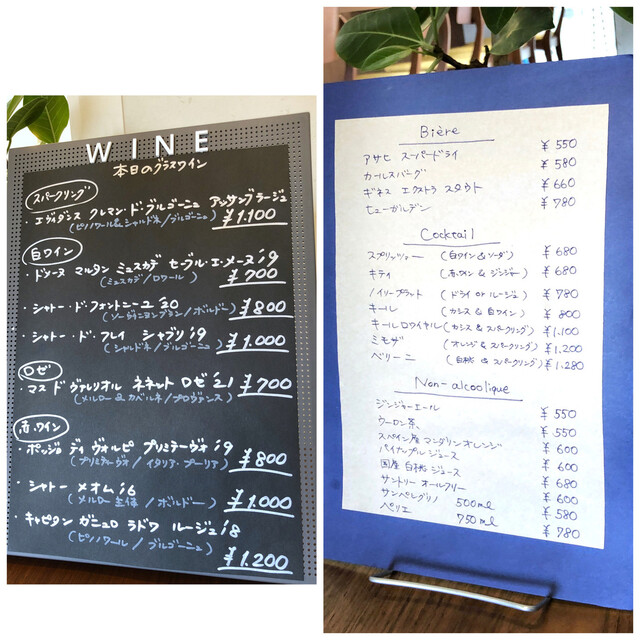 WINE
本日のグラスワイン
スパークリング
・エヴィダンス クレマン・ド・ブルゴーニュ アッサンブラージュ
(ピノノワール&シャルドネ/ブルゴーニュ) ¥1,100
白ワイン
・ドメーヌ マルタン ミュスカデ セーブル・エ・メーヌ'19
(ミュスカデ/ロワール) ¥700
・シャトー・ド・フォントニーユ'20 ¥800
(ソーヴィニヨンブラン/ボルドー)
・シャトー・ド・フレイ シャブリ'19
(シャルドネ/ブルゴーニュ) ¥1,000
ロゼ
・マス ド ヴァリオル ネネット ロゼ'21 ¥700
(メルロー&カベルネ/プロヴァンス)
赤ワイン
・ポッジョ ディ ヴォルピ プリミティーヴォ'19
(プリミティーヴォ/イタリア・プーリア) ¥800
・シャトー メオム'16
(メルロー主体/ボルドー) ¥1,000
・キャピタン ガニュロ ラドワ ルージュ'18
(ピノノワール/ブルゴーニュ) ¥1,200
Bière
アサヒ スーパードライ ¥550
カールスバーグ ¥580
ギネス エクストラ スタウト ¥660
ヒューガルデン ¥780
Cocktail
スプリッツァー (白ワイン&ソーダ) ¥680
キティ (赤ワイン&ジンジャー) ¥680
ノイリープラット (ドライ or ルージュ) ¥780
キール (カシス&白ワイン) ¥800
キールロワイヤル (カシス&スパークリング) ¥1,100
ミモザ (オレンジ&スパークリング) ¥1,200
ベリーニ (白桃&スパークリング) ¥1,280
Non-alcoolique
ジンジャーエール ¥550
ウーロン茶 ¥550
スペイン産マンダリンオレンジ ¥600
パイナップルジュース ¥600
国産白桃ジュース ¥680
サントリー オールフリー ¥600
サンペレグリノ 500ml ¥580
ペリエ 750ml ¥780